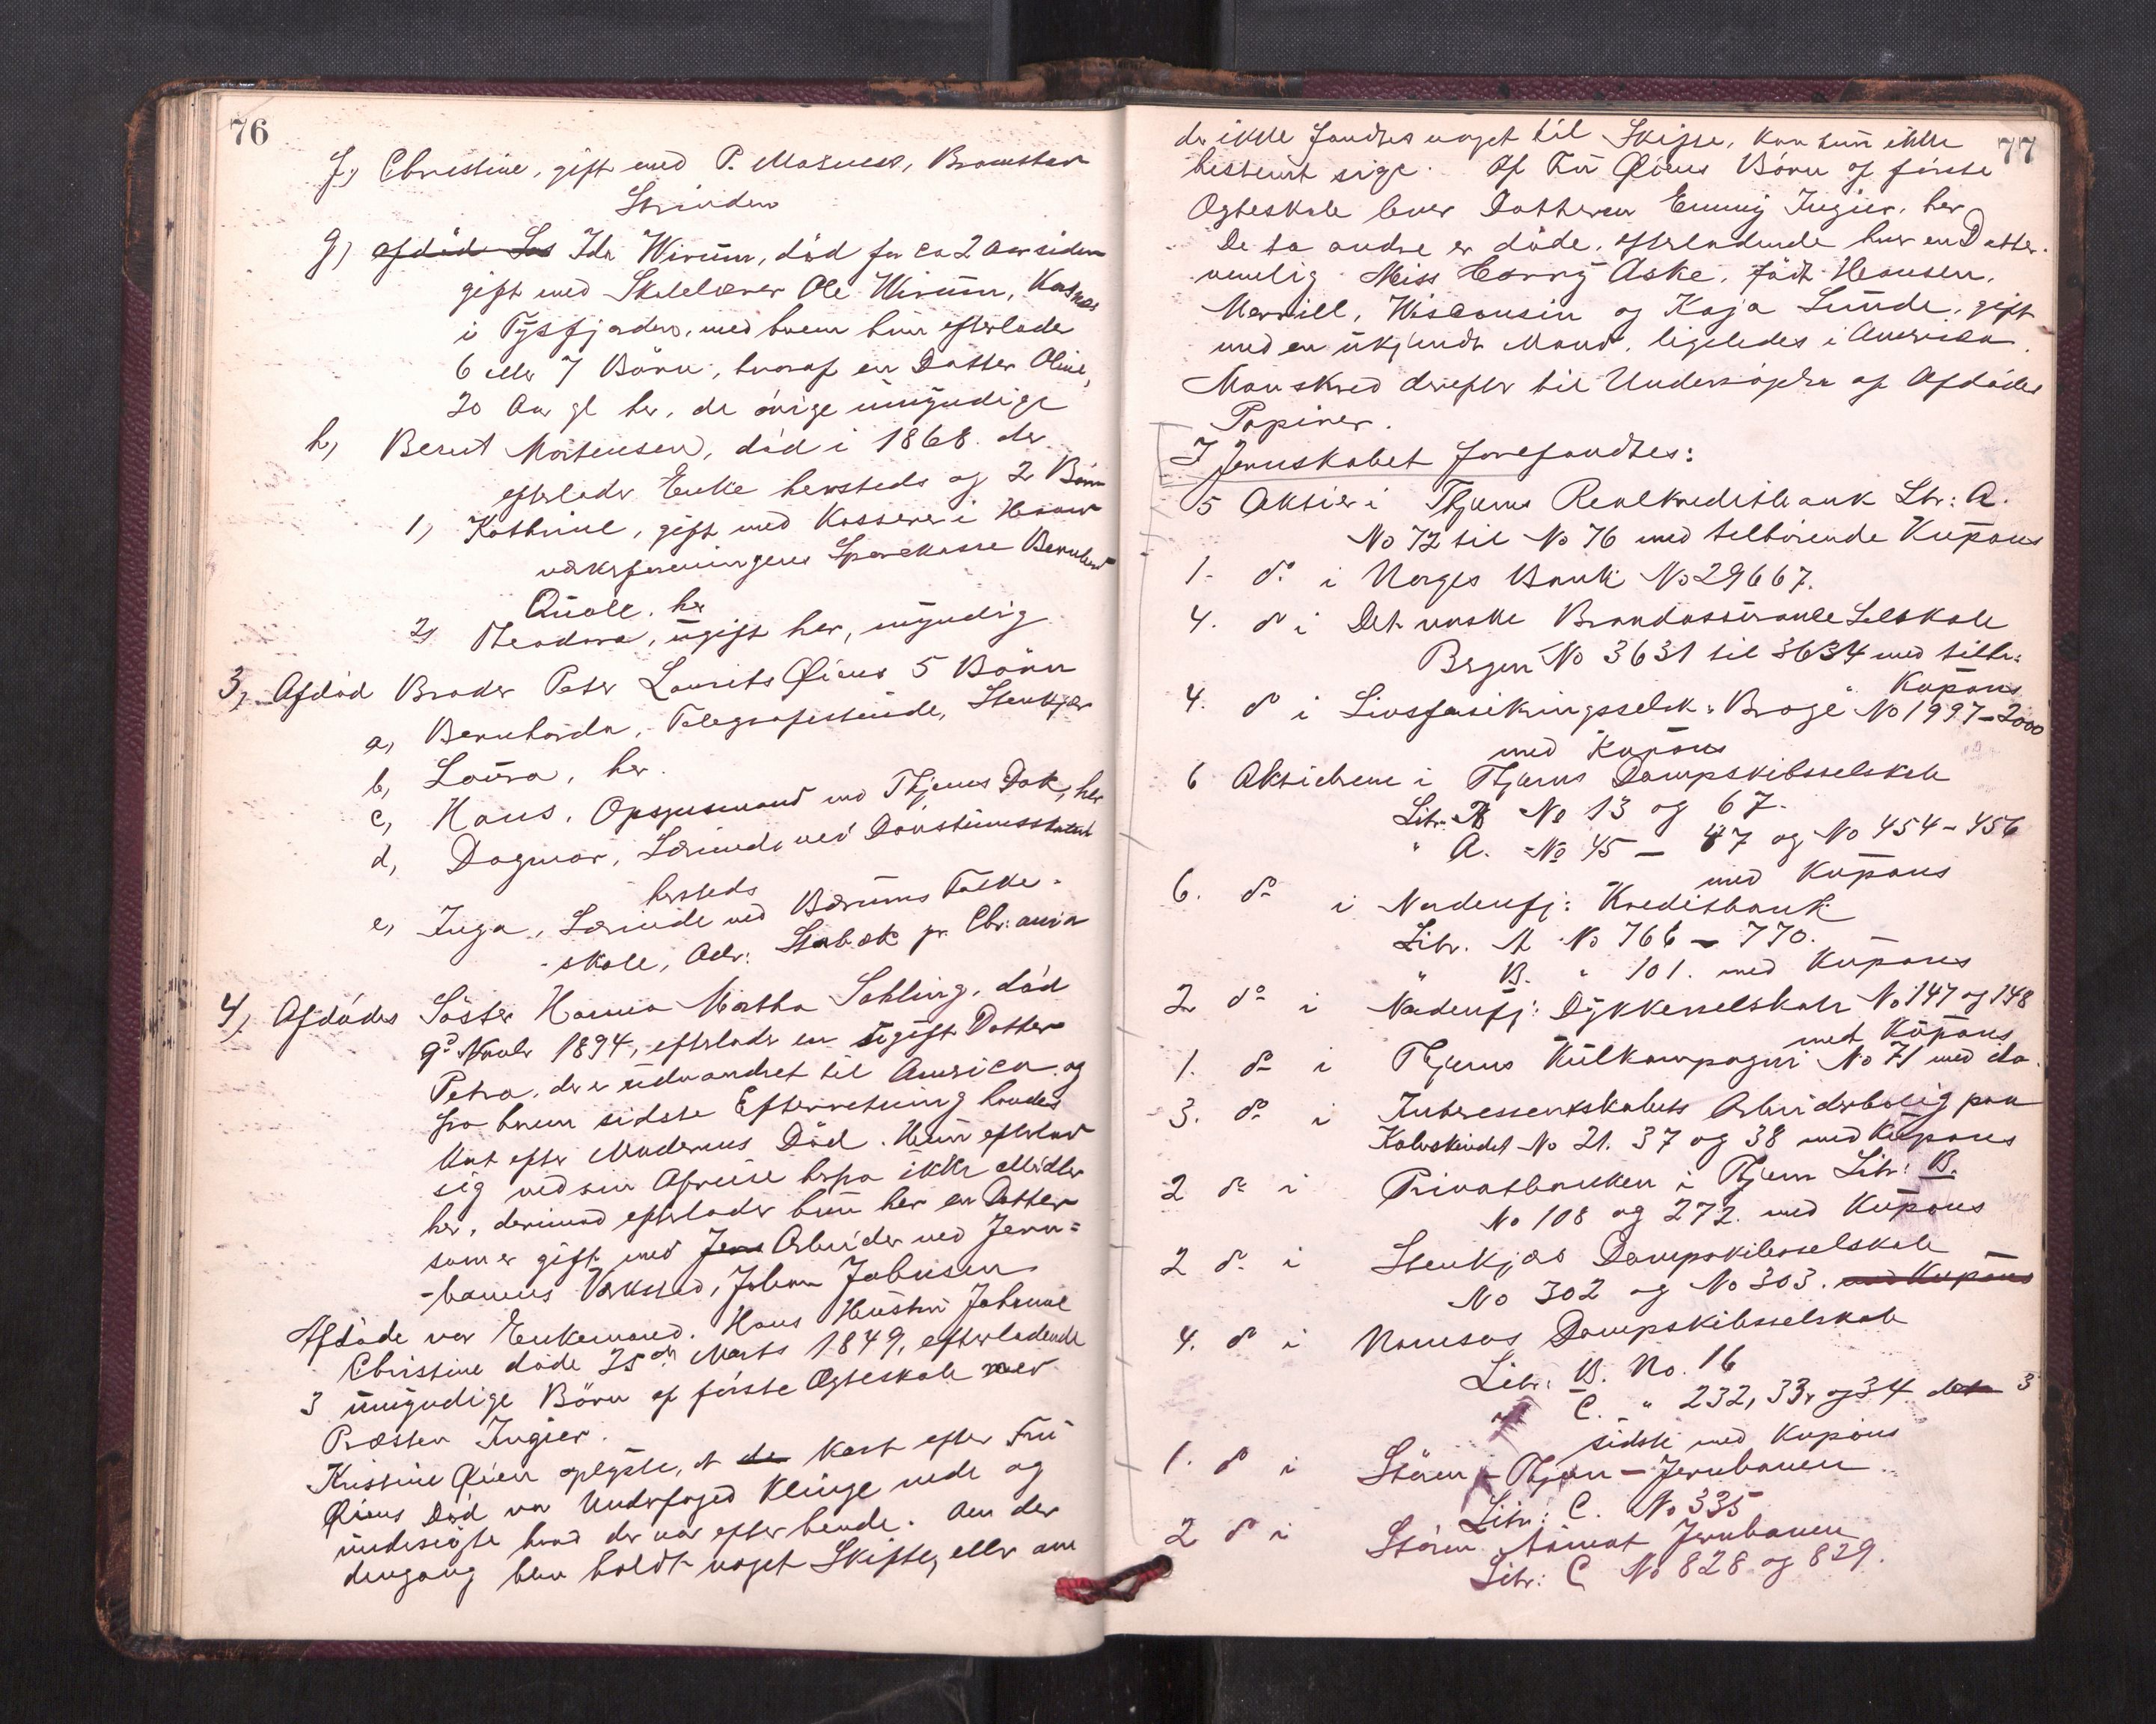 76
f, Christine, gift med P. Masnes, Bromstad
Strinden
g) afdöd Sös Ida Wirum, död for ca 2 Aar siden
gift med Skolelærer Ole Wirum, Kasnæs
i Tysfjorden, med hvem hun efterlod
6 eller 7 Börn, hvoraf en Datter Oline,
20 Aar gl her, de övrige umyndige
h, Bernt Mortensen, död i 1868. der
efterlod Enke hersteds og 2 Börn
1, Kathrine, gift med Kasserer i Haand
værkerforeningens Sparekasse Bernhard
Qvale. her
2, Theodora, ugift her, myndig
3, Afdöd Broder Peter Laurits Öiens 5 Börn
a, Bernharda, Telegrafistinde, Stenkjær
b, Laura, her.
c, Hans, Opsynsmand ved Thjems Dok, her
d, Dagmar, Lærinde ved Døvstummeinstitut
hersteds
e, Inga, Lærinde ved Bærums Folke-
-skole, Adr: Stabæk pr. Chr:ania
4, Afdödes Söster Hanna Martha Sahling, död
9de Novbr 1894, efterlod en ugift Datter
Petra, der er udvandret til America og
fra hvem sidste Efterretning havdes
kort efter Moderens Död. Hun efterlod
sig ved sin Afreise herfra ikke Midler
her, derimod efterlader hun her en Datter
som er gift med Jern Arbeider ved Jern=
-banens Værksted, Johan Johnsen
Afdöde var Enkemand. Hans Hustru Johanne
Christine döde 25de Marts 1849, efterladende
3 umyndige Börn af förste Ægteskab med
Præsten Ingier.
Kristine Öien oplyste, at de kort efter Fru
Öiens Död var Underfoged Klinge nede og
undersögte hvad der var efter hende. Om der
dengang blev holdt noget Skifte, eller om
77
der ikke fandtes noget til Skifte, kan hun ikke
bestemt sige. Af Fru Öiens Börn af förste
Ægteskab lever Datteren Emmy Ingier, her
De to andre er döde, efterladende hver en Datter.
nemlig Miss Harry Aske, födt Hansen,
Merrill, Wisconsin og Kaja Lunde, gift
med en ukjendt Mand, ligeledes i America.
Man skred derefter til Undersøgelse af Afdödes
Papirer.
I Jernskabet forefandtes:
5 Aktier i Thjems Realkreditbank Litr: A.
No 72 til No 76 med tilhörende Kupons
1. do i Norges Bank No 29667.
4. do i Det norske Brandassurance Selskab
Bergen No 3631 til 3634 med tilh:
Kupons
4. do i Livsforsikringsselsk: Brage No 1997-2000
med Kupons
6 Aktiebreve i Thjems Dampskibsselskab
Litr. B No 13 og 67.
" A. No 45 - 47 og No 454-456
med Kupons
6. do i Nordenfj: Kreditbank
Litr. A No 766 - 770.
" B. " 101. med Kupons
2 do i Nordenfj: Dykkerselskab No 147 og 148
med Kupons
1. do i Thjems Kulkompagni No 71 med do.
3. do i Interessentskabets Arbeiderbolig paa
Kalvskindet No 21. 37 og 38 med Kupons
2 do i Privatbanken i Thjem Litr: B.
No 108 og 272. med Kupons
2 do i Stenkjær Dampskibsselskab
No 302 og No 303. med Kupons
4. do i Namsos Dampskibsselskab
Litr: B. No. 16
" C. " 232, 33, og 34 de 3
sidste med Kupons
1. do i Stören - Thjem - Jernbanen
Litr: C. No 335
2 do i Stören Aamot Jernbanen
Litr: C No 828 og 829.